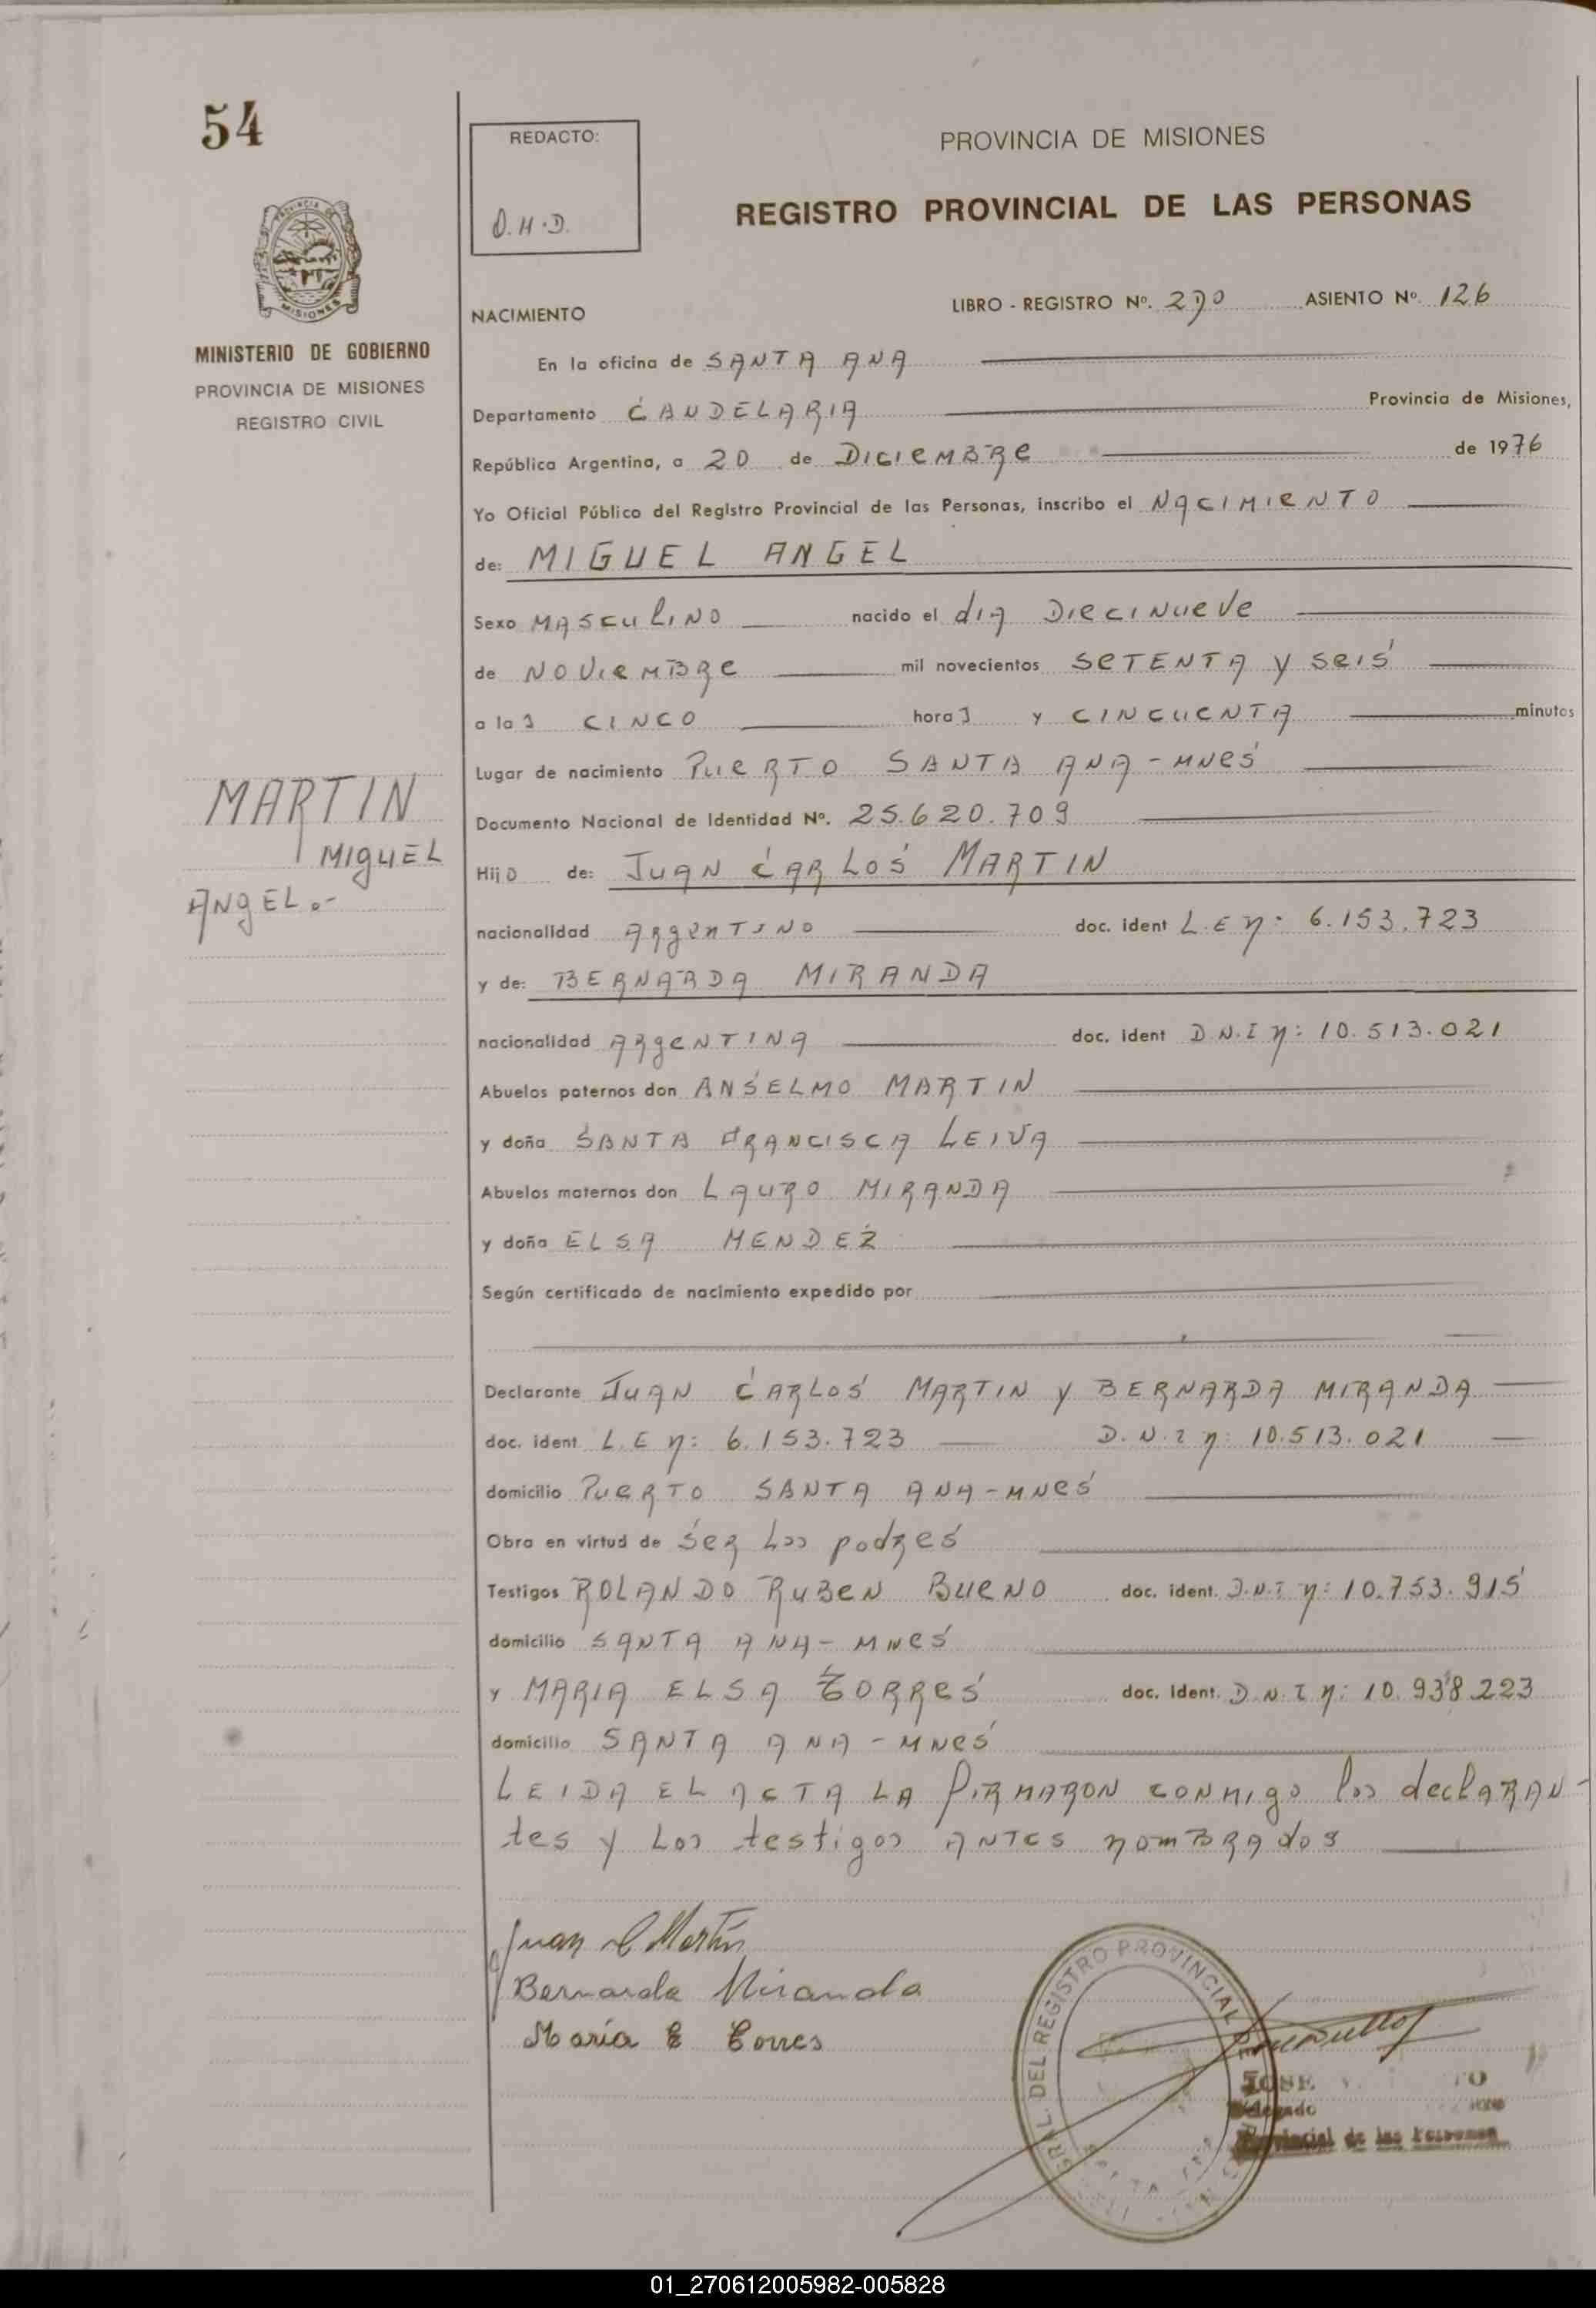 54
REDACTO:
O.H.D.
PROVINCIA DE MISIONES
REGISTRO PROVINCIAL DE LAS PERSONAS
MISIONES
MINISTERIO DE GOBIERNO
PROVINCIA DE MISIONES
REGISTRO CIVIL
NACIMIENTO LIBRO - REGISTRO Nº. 290 ASIENTO Nº. 126
En la oficina de SANTA ANA
Departamento CANDELARIA Provincia de Misiones,
República Argentina, a 20 de DICIEMBRE de 1976
Yo Oficial Público del Registro Provincial de las Personas, inscribo el NACIMIENTO
de: MIGUEL ANGEL
Sexo MASCULINO nacido el día DIECINUEVE
de NOVIEMBRE mil novecientos SETENTA y SEIS
a las CINCO horas y CINCUENTA minutos
Lugar de nacimiento PUERTO SANTA ANA - MNES
Documento Nacional de Identidad Nº. 25.620.709
MARTIN
MIGUEL
ANGEL.-
Hijo de: JUAN CARLOS MARTIN
nacionalidad ARGENTINO doc. ident L.E Nº: 6.153.723
y de: BERNARDA MIRANDA
nacionalidad ARGENTINA doc. ident D.N.I Nº: 10.513.021
Abuelos paternos don ANSELMO MARTIN
y doña SANTA FRANCISCA LEIVA
Abuelos maternos don LAURO MIRANDA
y doña ELSA MENDEZ
Según certificado de nacimiento expedido por
Declarante JUAN CARLOS MARTIN y BERNARDA MIRANDA
doc. ident. L.E Nº: 6.153.723 D.N.I Nº: 10.513.021
domicilio PUERTO SANTA ANA - MNES
Obra en virtud de SER LOS padres
Testigos ROLANDO RUBEN BUENO doc. ident. D.N.I Nº: 10.753.915
domicilio SANTA ANA - MNES
y MARIA ELSA TORRES doc. ident. D.N.I Nº: 10.938.223
domicilio SANTA ANA - MNES
LEIDA EL ACTA LA FIRMARON CONMIGO los declARAN-
tes y Los testigos ANTES nomBRADOS
Juan C Martín
Bernarda Miranda
María E Torres
GRAL. DEL REGISTRO PROVINCIAL DE
JOSE
Delegado
Provincial de las Personas
01_270612005982-005828